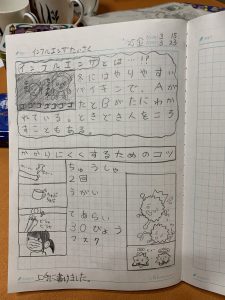 インフルエンザたいさく
3 15
3 23
インフルエンザとは…!?
冬にはやりやすい
バイキンで、Aが
たとBがたにわか
れている。ときどき人をころ
すこともある。
かかりにくくするためのコツ
ちゅうしゃ
2回
うがい
てあらい
30びょう
マスク
上手に書けました。